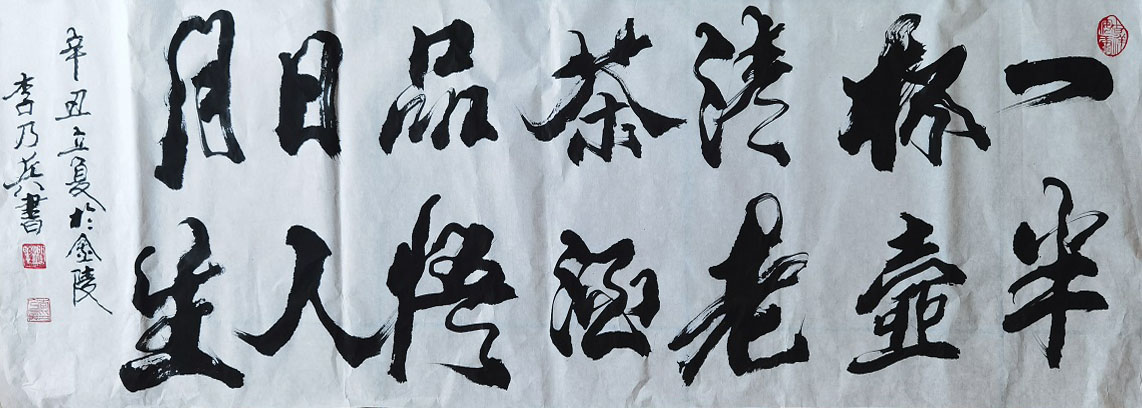 一半
杯壶
清老
茶酒
品悟
日人
月生
辛丑立夏於金陵
李乃兵書